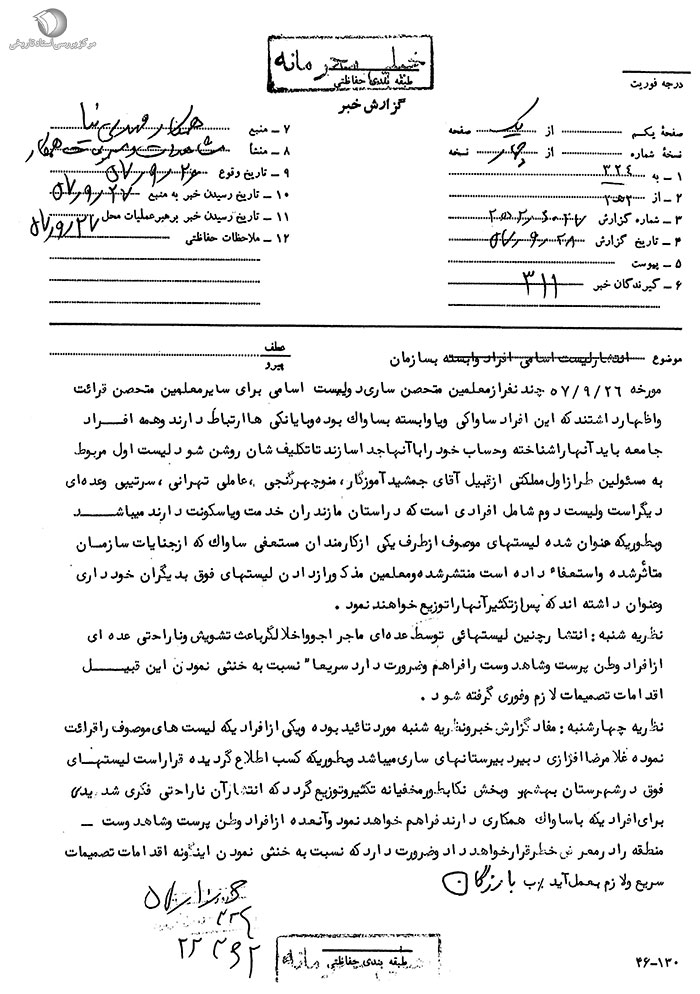 مرکز بررسی اسناد تاریخی
خیلی محرمانه
طبقه بندی حفاظتی
گزارش خبر
درجه فوریت
صفحهٔ یکم از یک صفحه
نسخهٔ شماره از چهار نسخه
۱ ـ به ۳۲٤
۲ ـ از
۳ ـ شماره گزارش
۴ ـ تاریخ گزارش ۵۷٫۹٫۲۸
۵ ـ پیوست
۶ ـ گیرندگان خبر ۳۱۱
۷ ـ منبع همکار مهدی نیا
۸ ـ منشأ مشاهدات و مسموعات همکار
۹ ـ تاریخ وقوع ۵۷٫۹٫۲۶
۱۰ ـ تاریخ رسیدن خبر به منبع ۵۷٫۹٫۲۷
۱۱ ـ تاریخ رسیدن خبر برهبر عملیات محل ۵۷٫۹٫۲۷
۱۲ ـ ملاحظات حفاظتی
موضوع ـ انتشار لیست اسامی افراد وابسته بسازمان
عطف
پیرو
مورخه ۵۷/۹/۲۶ چند نفر از معلمین متحصن ساری دو لیست اسامی برای سایر معلمین متحصن قرائت
و اظهار داشتند که این افراد ساواکی و یا وابسته بساواک بوده و یا بانکی ها ارتباط دارند و همه افـــراد
جامعه باید آنها را شناخته و حساب خود را با آنها جدا سازند تا تکلیف شان روشن شود لیست اول مربوط
به مسئولین طراز اول مملکتی از قبیل آقای جمشید آموزگار، منوچهر گنجی ،عاملی تهرانی ،سرتیپی وعده ای
دیگر است و لیست دوم شامل افرادی است که در استان مازندران خدمت و یا سکونت دارند میباشـــد
و بطوریکه عنوان شده لیستهای موصوف از طرف یکی از کارمندان مستعفی ساواک که از جنایات سازمـان
متأثر شده و استعفاء داده است منتشر شده و معلمین مذکور از دادن لیستهای فوق بدیگران خود داری
و عنوان داشته اند که پس از تکثیر آنها را توزیع خواهند نمود .
نظریه شنبه : انتشار چنین لیستهائی توسط عده ای ماجراجو و اخلالگر باعث تشویش و ناراحتی عده ای
از افراد وطن پرست و شاهدوست را فراهم و ضرورت دارد سریعا" نسبت به خنثی نمودن این قبیـــل
اقدامات تصمیمات لازم و فوری گرفته شود .
نظریه چهارشنبه : مفاد گزارش خبر و نظریه شنبه مورد تائید بوده و یکی از افرادیکه لیست های موصوف را قرائت
نموده غلامرضا افزازی دبیر دبیرستانهای ساری میباشد و بطوریکه کسب اطلاع گردیده قرار است لیستهــای
فوق در شهرستان بهشهر و بخش نکا بطور مخفیانه تکثیر و توزیع گردد که انتشار آن ناراحتی فکری شدیدی
برای افرادیکه با ساواک همکاری دارند فراهم خواهد نمود و آنعده از افراد وطن پرست و شاهدوست ـ
منطقه را در معرض خطر قرار خواهد داد و ضرورت دارد که نسبت به خنثی نمودن اینگونه اقدامات تصمیمات
سریع و لازم بعمل آید /ب بازرگان
۳۲٤
۲۲ ۳۹۲
خیلی محرمانه
طبقه بندی حفاظتی
۴۶-۱۳۰